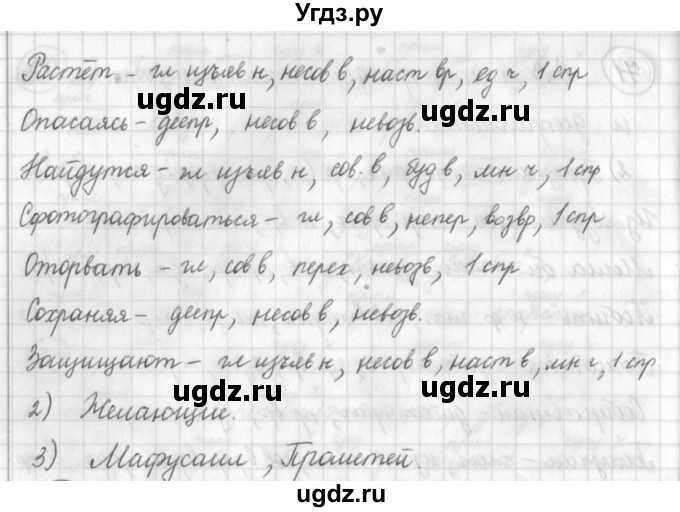 Угдз.ру
Растёт – гл изъяв н, несов в, наст вр, ед ч, 1 спр
Опасаясь – деепр, несов в, невозв.
Найдутся – гл изъяв н, сов. в, буд в, мн ч, 1 спр
Сфотографироваться – гл, сов в, непер, возвр, 1 спр
Оторвать – гл, сов в, перех, невозв, 1 спр
Сохраняя – деепр, несов в, невозв.
Защищают – гл изъяв н, несов в, наст в, мн ч, 1 спр.
2) Желающие.
3) Мафусаил, Прометей.
ugdz.ru ugdz.ru
ugdz.ru ugdz.ru
ugdz.ru ugdz.ru
ugdz.ru ugdz.ru
ugdz.ru